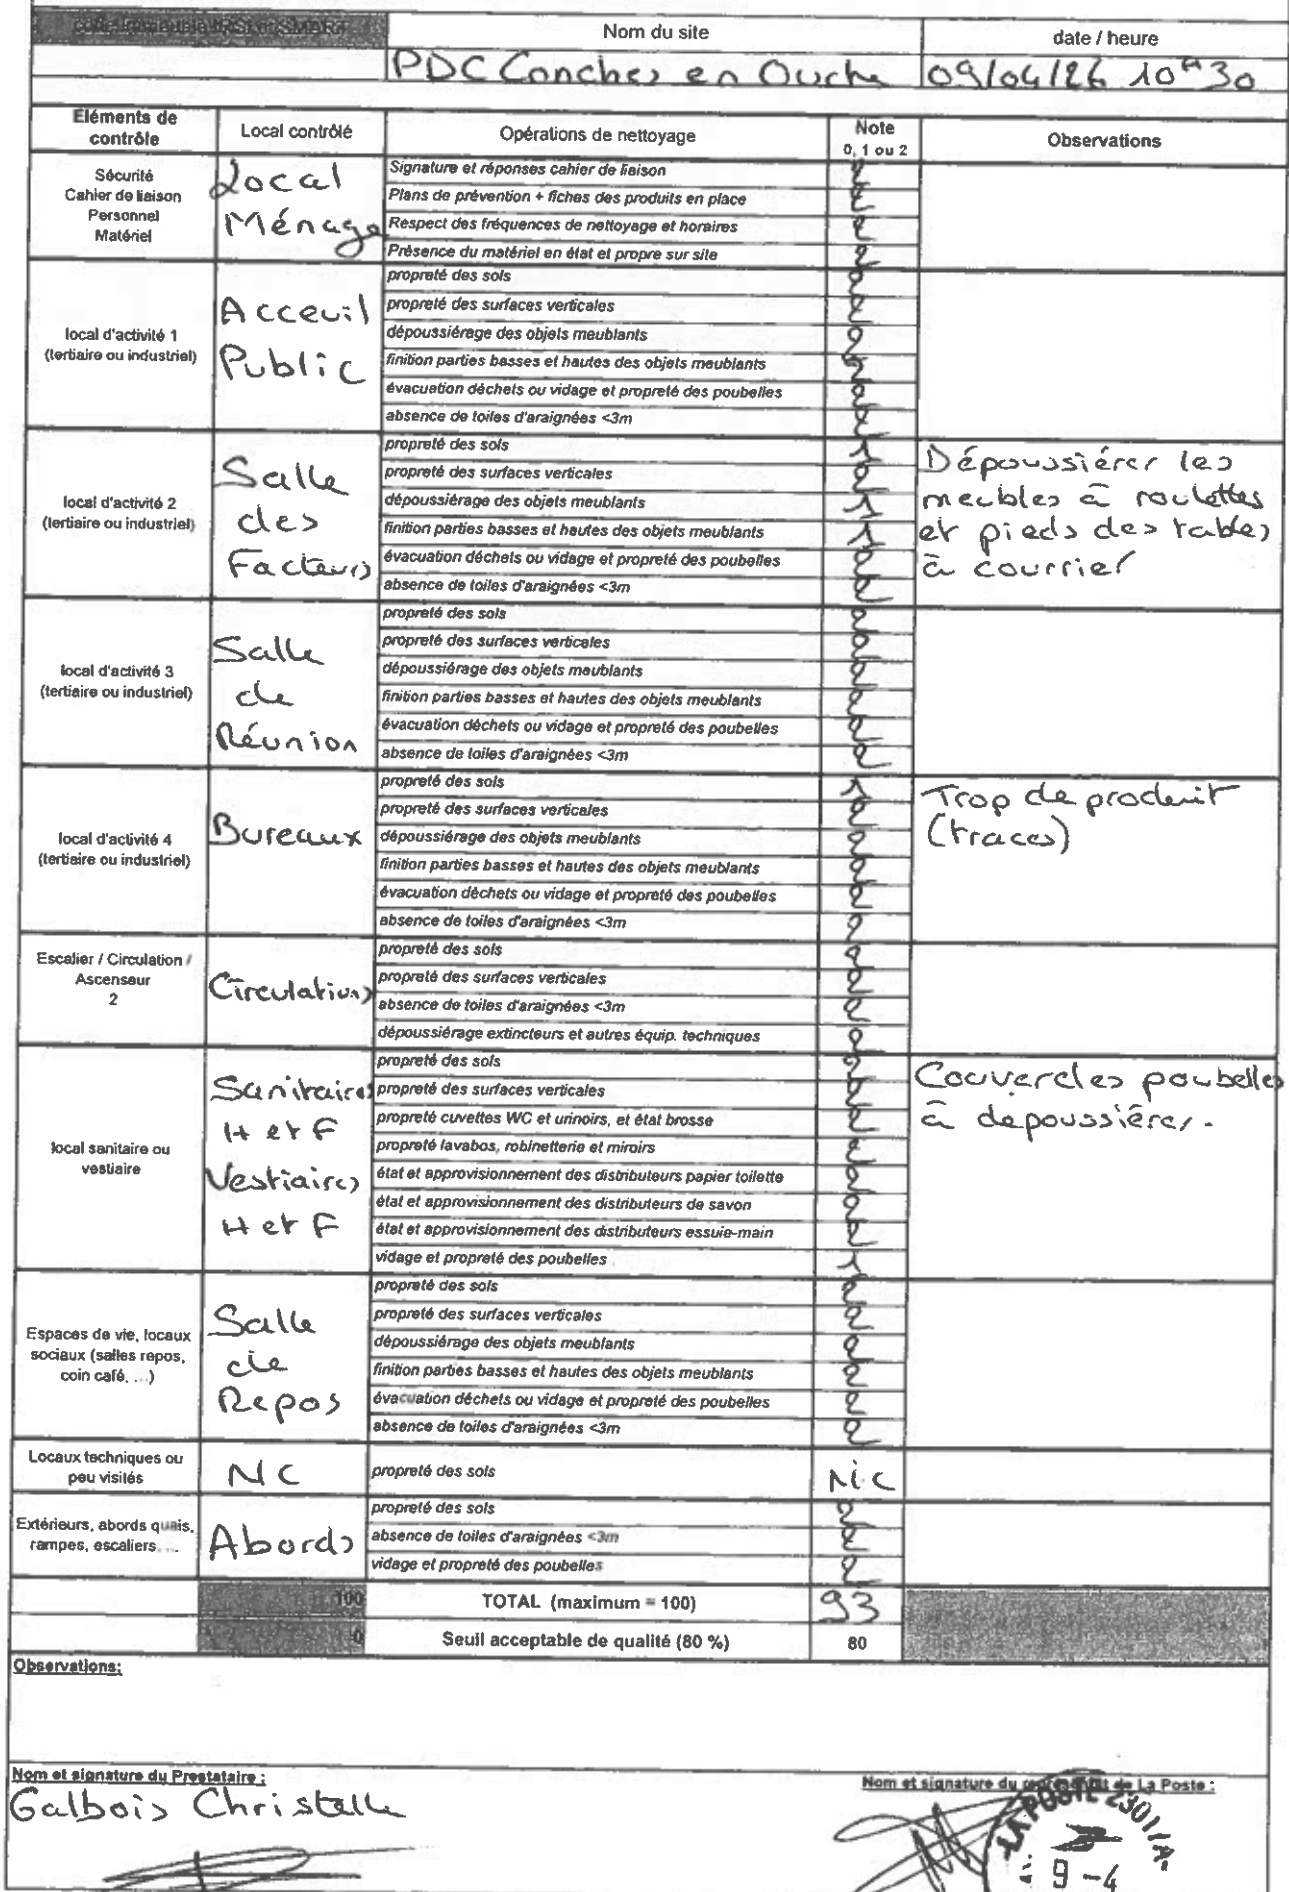 Nom du site
date / heure
PDC Conches en Ouche
09/04/26 10H30
Eléments de contrôle
Local contrôlé
Opérations de nettoyage
Note
0, 1 ou 2
Observations
Sécurité
Cahier de liaison
Personnel
Matériel
Local
Ménage
Signature et réponses cahier de liaison 2
Plans de prévention + fiches des produits en place 2
Respect des fréquences de nettoyage et horaires 2
Présence du matériel en état et propre sur site 2
local d'activité 1
(tertiaire ou industriel)
Acceuil
Public
propreté des sols 2
propreté des surfaces verticales 2
dépoussiérage des objets meublants 2
finition parties basses et hautes des objets meublants 2
évacuation déchets ou vidage et propreté des poubelles 2
absence de toiles d'araignées <3m 2
local d'activité 2
(tertiaire ou industriel)
Salle
des
Facteurs
propreté des sols 1
propreté des surfaces verticales 2
dépoussiérage des objets meublants 1
finition parties basses et hautes des objets meublants 1
évacuation déchets ou vidage et propreté des poubelles 2
absence de toiles d'araignées <3m 2
Dépoussiérer les
meubles à roulettes
et pieds des tables
à courrier
local d'activité 3
(tertiaire ou industriel)
Salle
de
Réunion
propreté des sols 2
propreté des surfaces verticales 2
dépoussiérage des objets meublants 2
finition parties basses et hautes des objets meublants 2
évacuation déchets ou vidage et propreté des poubelles 2
absence de toiles d'araignées <3m 2
local d'activité 4
(tertiaire ou industriel)
Bureaux
propreté des sols 1
propreté des surfaces verticales 2
dépoussiérage des objets meublants 2
finition parties basses et hautes des objets meublants 2
évacuation déchets ou vidage et propreté des poubelles 2
absence de toiles d'araignées <3m 2
Trop de produit
(traces)
Escalier / Circulation /
Ascenseur
2
Circulations
propreté des sols 2
propreté des surfaces verticales 2
absence de toiles d'araignées <3m 2
dépoussiérage extincteurs et autres équip. techniques 2
local sanitaire ou
vestiaire
Sanitaires
H et F
Vestiaires
H et F
propreté des sols 2
propreté des surfaces verticales 2
propreté cuvettes WC et urinoirs, et état brosse 2
propreté lavabos, robinetterie et miroirs 2
état et approvisionnement des distributeurs papier toilette 2
état et approvisionnement des distributeurs de savon 2
état et approvisionnement des distributeurs essuie-main 2
vidage et propreté des poubelles 1
Couvercles poubelles
à depoussiérer.
Espaces de vie, locaux
sociaux (salles repos,
coin café, ...)
Salle
de
Repos
propreté des sols 2
propreté des surfaces verticales 2
dépoussiérage des objets meublants 2
finition parties basses et hautes des objets meublants 2
évacuation déchets ou vidage et propreté des poubelles 2
absence de toiles d'araignées <3m 2
Locaux techniques ou
peu visités
NC
propreté des sols
N.C
Extérieurs, abords quais,
rampes, escaliers...
Abords
propreté des sols 2
absence de toiles d'araignées <3m 2
vidage et propreté des poubelles 2
100
TOTAL (maximum = 100)
93
0
Seuil acceptable de qualité (80 %)
80
Observations:
Nom et signature du Prestataire :
Galbois Christelle
Nom et signature du représentant de La Poste :
LA POSTE
9 - 4